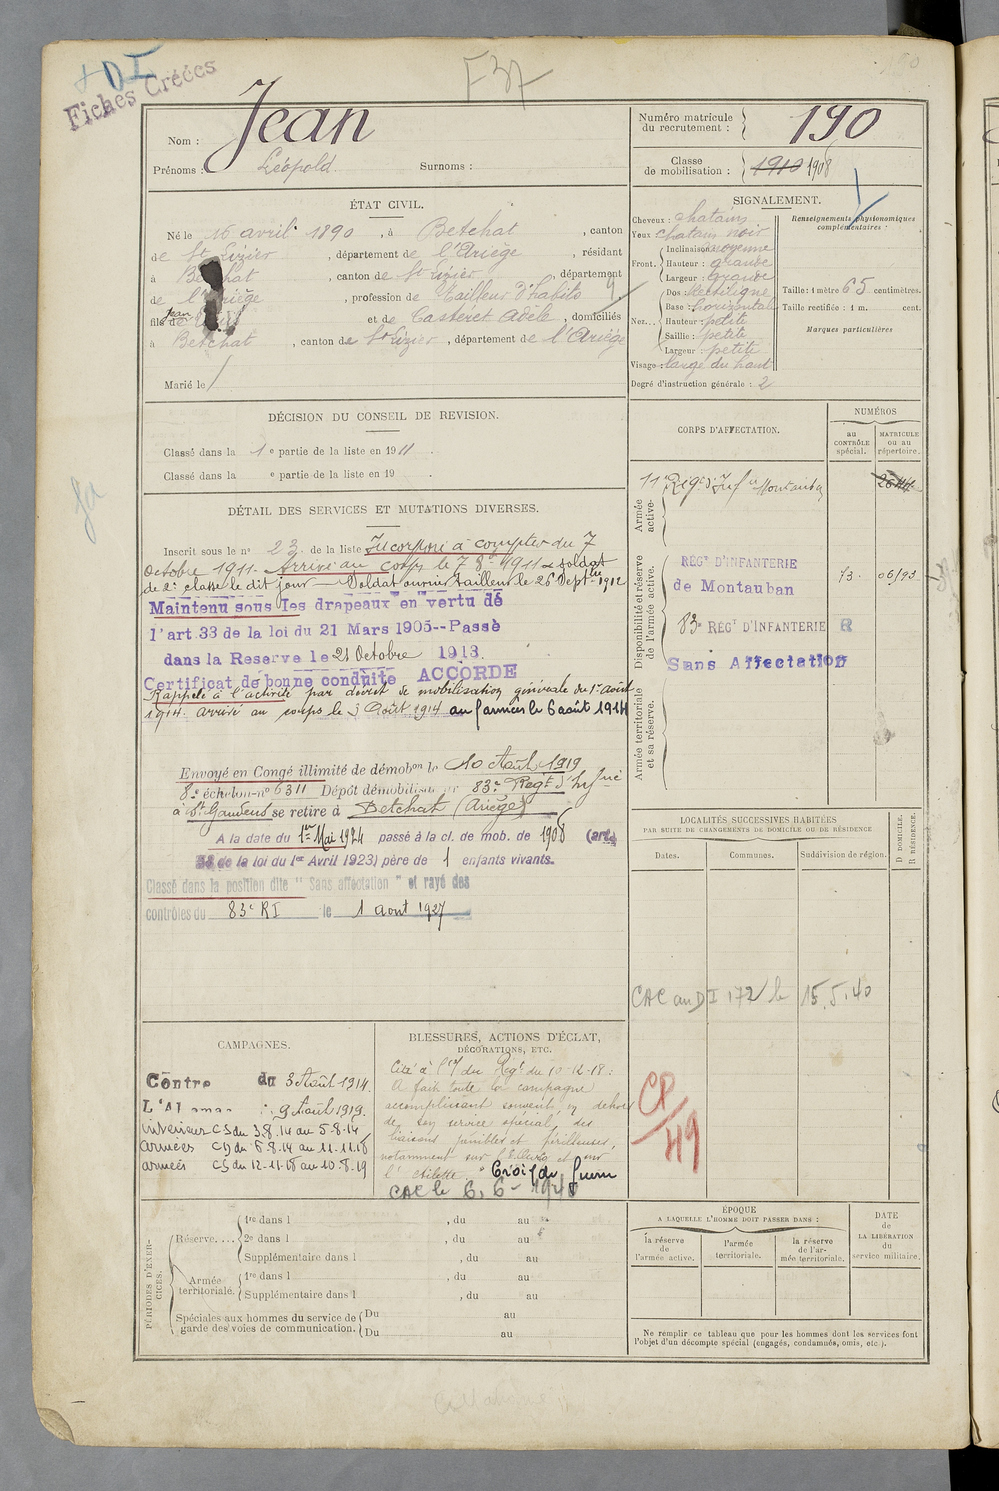 + DI
Fiches Créées
F37
190
Nom : Jean
Prénoms : Léopold. Surnoms :
Numéro matricule du recrutement : 190
Classe de mobilisation : 1910 1908
ÉTAT CIVIL.
Né le 16 avril 1890, à Betchat, canton
de St Lizier, département de l'Ariège, résidant
à Betchat, canton de St Lizier, département
de l'Ariège, profession de Tailleur d'habits
fils de Jean et de Casteret Adèle, domiciliés
à Betchat, canton de St Lizier, département de l'Ariège
Marié le /
SIGNALEMENT.
Cheveux : chatains
Yeux : chatains noir
Front. Inclinaison moyenne
Hauteur : grande
Largeur : grande
Nez... Dos : Rectiligne
Base : horizontale
Hauteur : petite
Saillie : petite
Largeur : petite
Visage : large du haut
Degré d'instruction générale : 2
Renseignements physionomiques complémentaires :
Taille : 1 mètre 65 centimètres.
Taille rectifiée : 1 m. cent.
Marques particulières
DÉCISION DU CONSEIL DE REVISION.
Classé dans la 1e partie de la liste en 1911.
Classé dans la e partie de la liste en 19 .
DÉTAIL DES SERVICES ET MUTATIONS DIVERSES.
Inscrit sous le n° 23 de la liste Incorporé à compter du 7
octobre 1911. Arrivé au corps le 7 8bre 1911 soldat
de 2e classe le dit jour — Soldat ouvrier tailleur le 26 Septbre 1912
Maintenu sous les drapeaux en vertu de
l'art.33 de la loi du 21 Mars 1905--Passé
dans la Reserve le 21 Octobre 1913.
Certificat de bonne conduite ACCORDÉ
Rappelé à l'activité par décret de mobilisation générale du 1er août
1914. arrivé au corps le 3 Août 1914 aux armées le 6 août 1914
Envoyé en Congé illimité de démobon le 10 Août 1919
8e échelon n° 6311 Dépôt démobilisateur 83e Regt d'Infrie
à St Gaudens se retire à Betchat (Ariège)
A la date du 1er Mai 1924 passé à la cl. de mob. de 1908 (art.
58 de la loi du 1er Avril 1923) père de 1 enfants vivants.
Classé dans la position dite " Sans affectation " et rayé des
contrôles du 83e RI le 1 aout 1927
CORPS D'AFFECTATION.
NUMÉROS
au CONTRÔLE spécial.
MATRICULE ou au répertoire.
Armée active.
11e Regt d'Infie Montauban
Disponibilité et réserve de l'armée active.
REGt D'INFANTERIE
de Montauban 73. 06/93
83e REGt D'INFANTERIE R
Sans Affectation
Armée territoriale et sa réserve.
LOCALITÉS SUCCESSIVES HABITÉES
PAR SUITE DE CHANGEMENTS DE DOMICILE OU DE RÉSIDENCE
Dates. Communes. Subdivision de région.
D DOMICILE. R RÉSIDENCE.
CAC au DI 172 le 15.5.40
CP/49
CAMPAGNES.
Contre du 3 Août 1914.
9 Août 1919.
intérieur CS du 3.8.14 au 5.8.14
armées CD du 6.8.14 au 11.11.18
armées CS du 12-11-18 au 10.8.19
BLESSURES, ACTIONS D'ÉCLAT,
DÉCORATIONS, ETC.
Cité à l'O/ du Regt du 10-12-18 :
A fait toute la campagne
accomplissant souvent, en dehors
de son service spécial, des
liaisons pénibles et périlleuses,
notamment sur l'Ourcq et sur
l'Ailette. " Croix de Guerre
CAC le 6.6-1940
PÉRIODES D'EXERCICES.
Réserve.... 1re dans l , du au
2e dans l , du au
Supplémentaire dans l , du au
Armée territoriale. 1re dans l , du au
Supplémentaire dans l , du au
Spéciales aux hommes du service de Du au
garde des voies de communication. Du au
ÉPOQUE
A LAQUELLE L'HOMME DOIT PASSER DANS :
la réserve de l'armée active.
l'armée territoriale.
la réserve de l'armée territoriale.
DATE de LA LIBÉRATION du service militaire.
Ne remplir ce tableau que pour les hommes dont les services font
l'objet d'un décompte spécial (engagés, condamnés, omis, etc.).